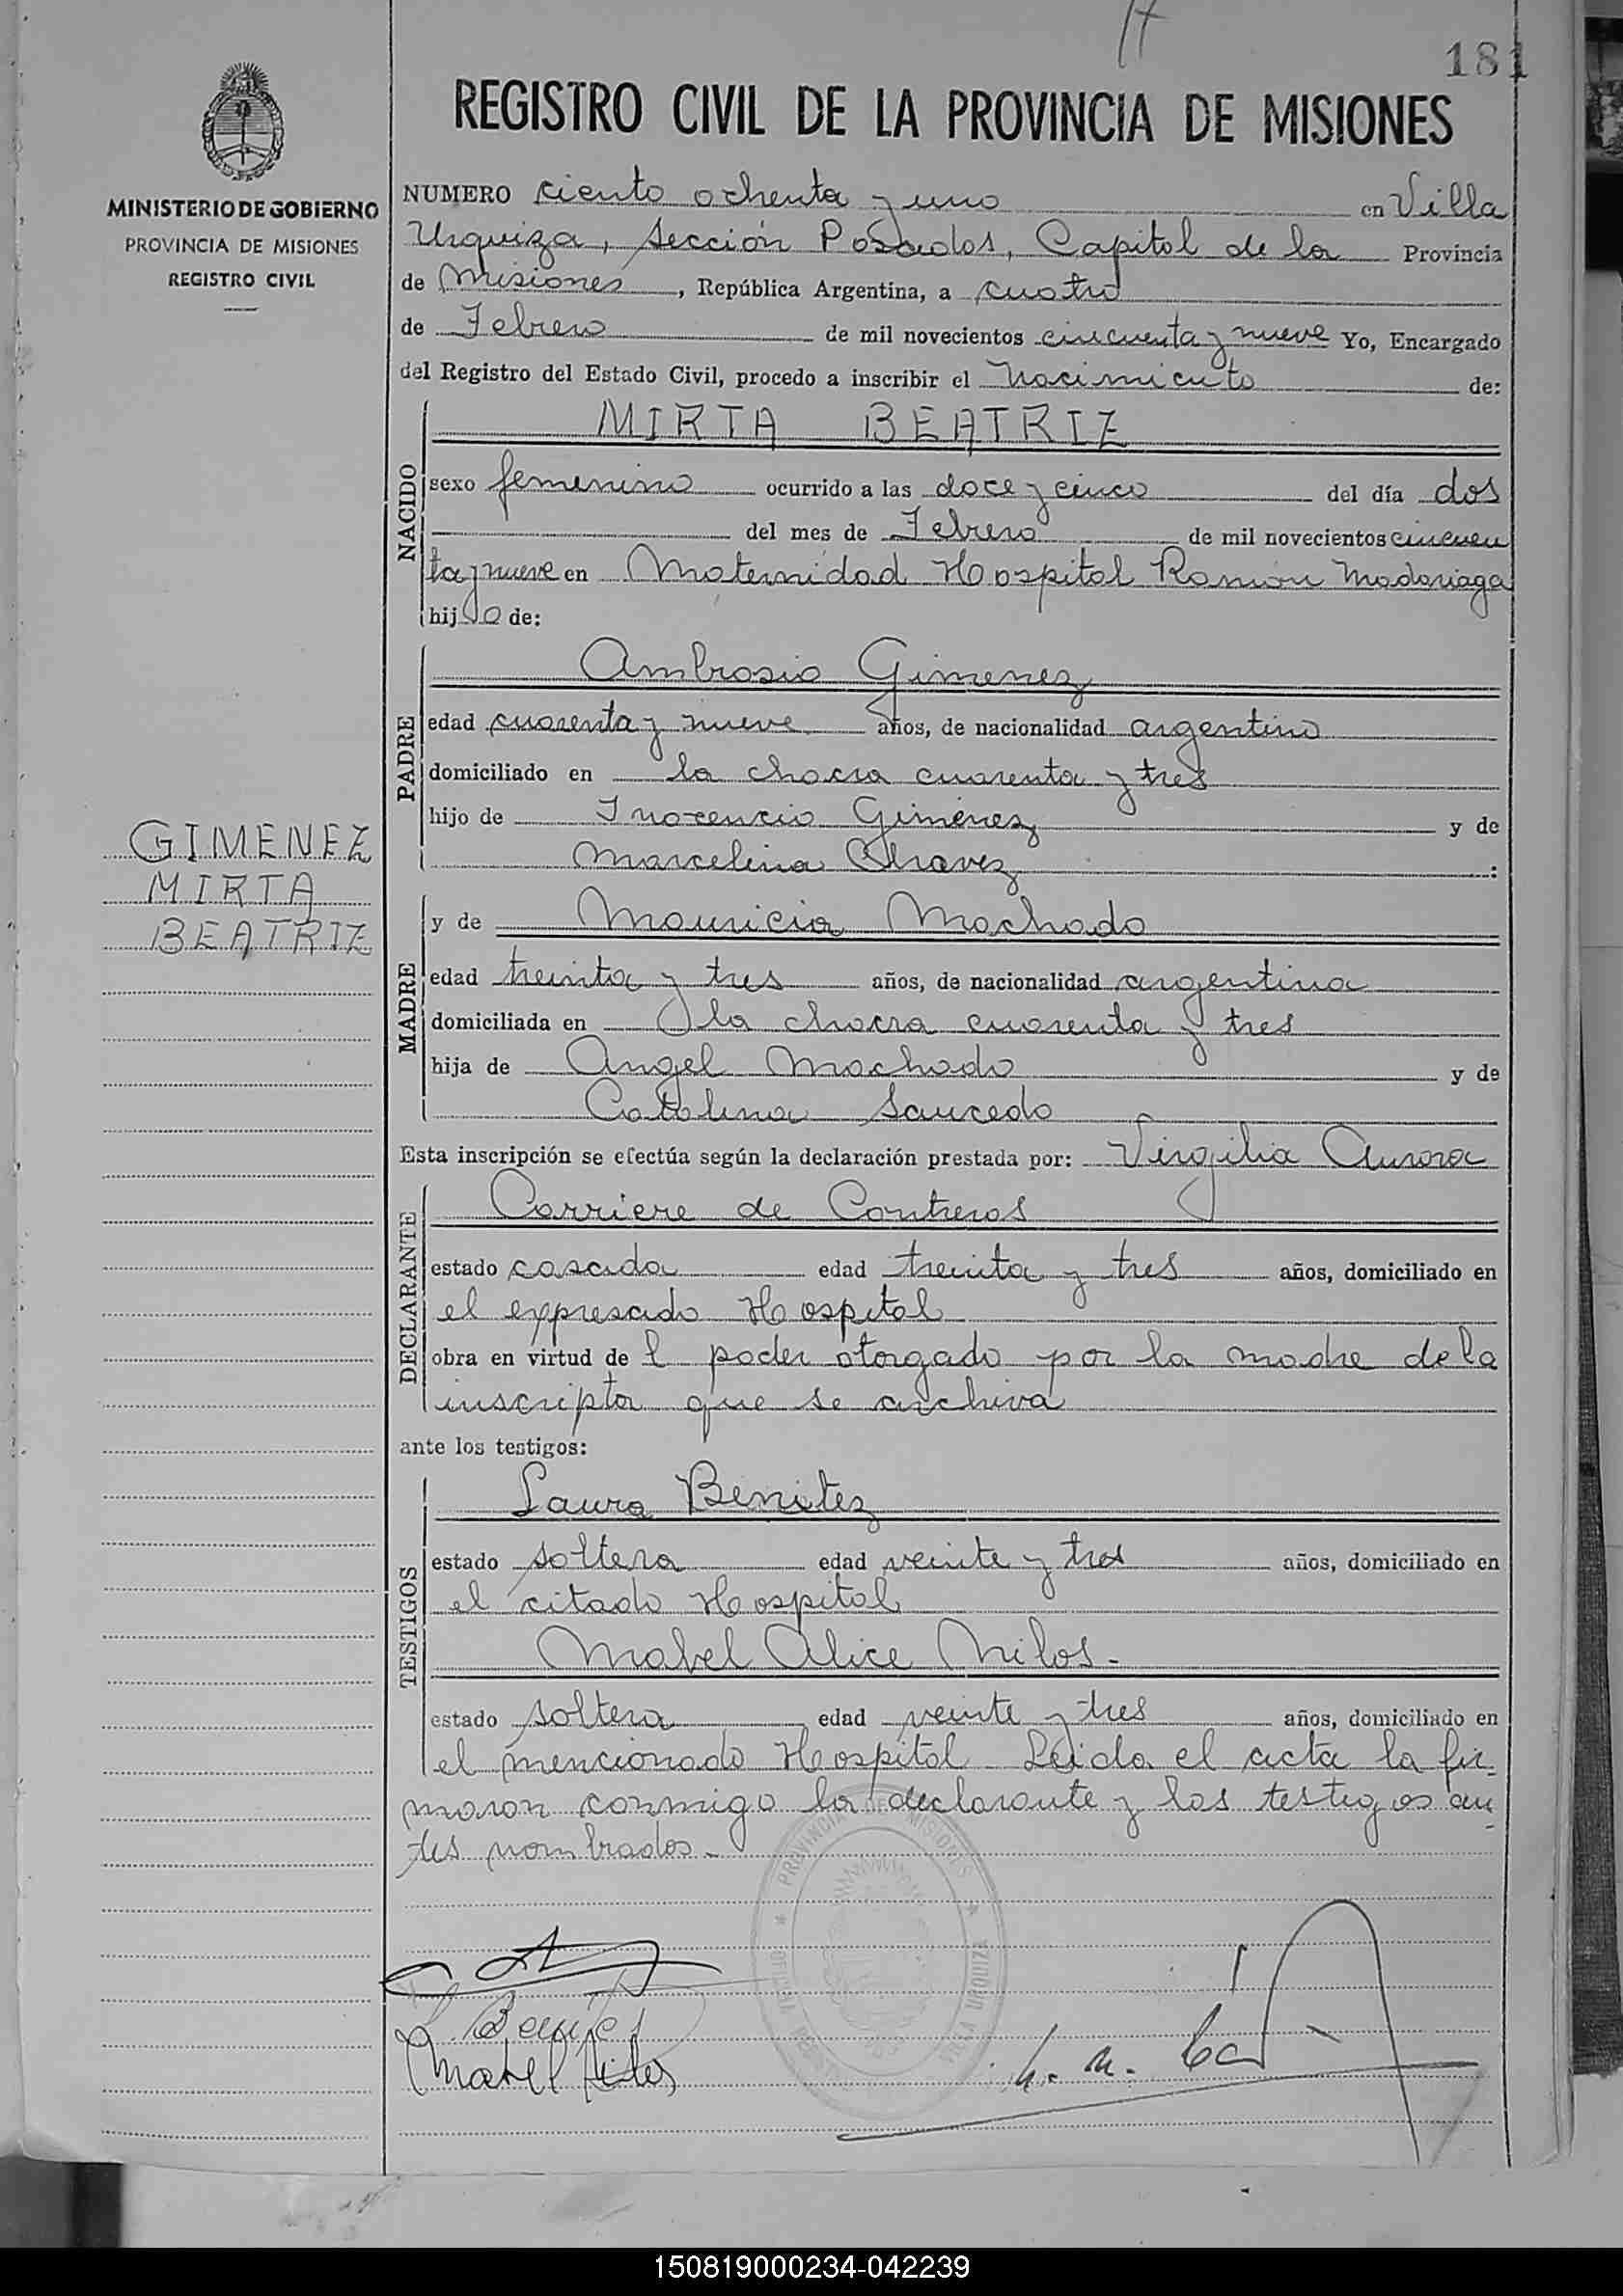 181
REGISTRO CIVIL DE LA PROVINCIA DE MISIONES
MINISTERIO DE GOBIERNO
PROVINCIA DE MISIONES
REGISTRO CIVIL
GIMENEZ
MIRTA
BEATRIZ
NUMERO ciento ochenta y uno en Villa
Urquiza, sección Posadas, Capital de la Provincia
de Misiones, República Argentina, a cuatro
de Febrero de mil novecientos cincuenta y nueve Yo, Encargado
del Registro del Estado Civil, procedo a inscribir el Nacimiento de:
MIRTA BEATRIZ
NACIDO
sexo femenino ocurrido a las doce y cinco del día dos
del mes de Febrero de mil novecientos cincuen
ta y nueve en Maternidad Hospital Ramón Madariaga
hija de:
Ambrosio Gimenez
PADRE
edad cuarenta y nueve años, de nacionalidad argentino
domiciliado en la chacra cuarenta y tres
hijo de Inocencio Gimenez y de
Marcelina Chavez :
MADRE
y de Mauricia Machado
edad treinta y tres años, de nacionalidad argentina
domiciliada en la chacra cuarenta y tres
hija de Angel Machado y de
Catalina Saucedo
Esta inscripción se efectúa según la declaración prestada por: Virgilia Aurora
DECLARANTE
Carriere de Contreras
estado casada edad treinta y tres años, domiciliado en
el expresado Hospital
obra en virtud de l poder otorgado por la madre de la
inscripta que se archiva
ante los testigos:
TESTIGOS
Laura Benitez
estado soltera edad veinte y tres años, domiciliado en
el citado Hospital
Mabel Alice Milos.-
estado soltera edad veinte y tres años, domiciliado en
el mencionado Hospital Leida el acta la fir-
maron conmigo la declarante y los testigos an-
tes nombrados.-
PROVINCIA DE MISIONES
VILLA URQUIZA
L. Benitez
Mabel Milos
150819000234-042239